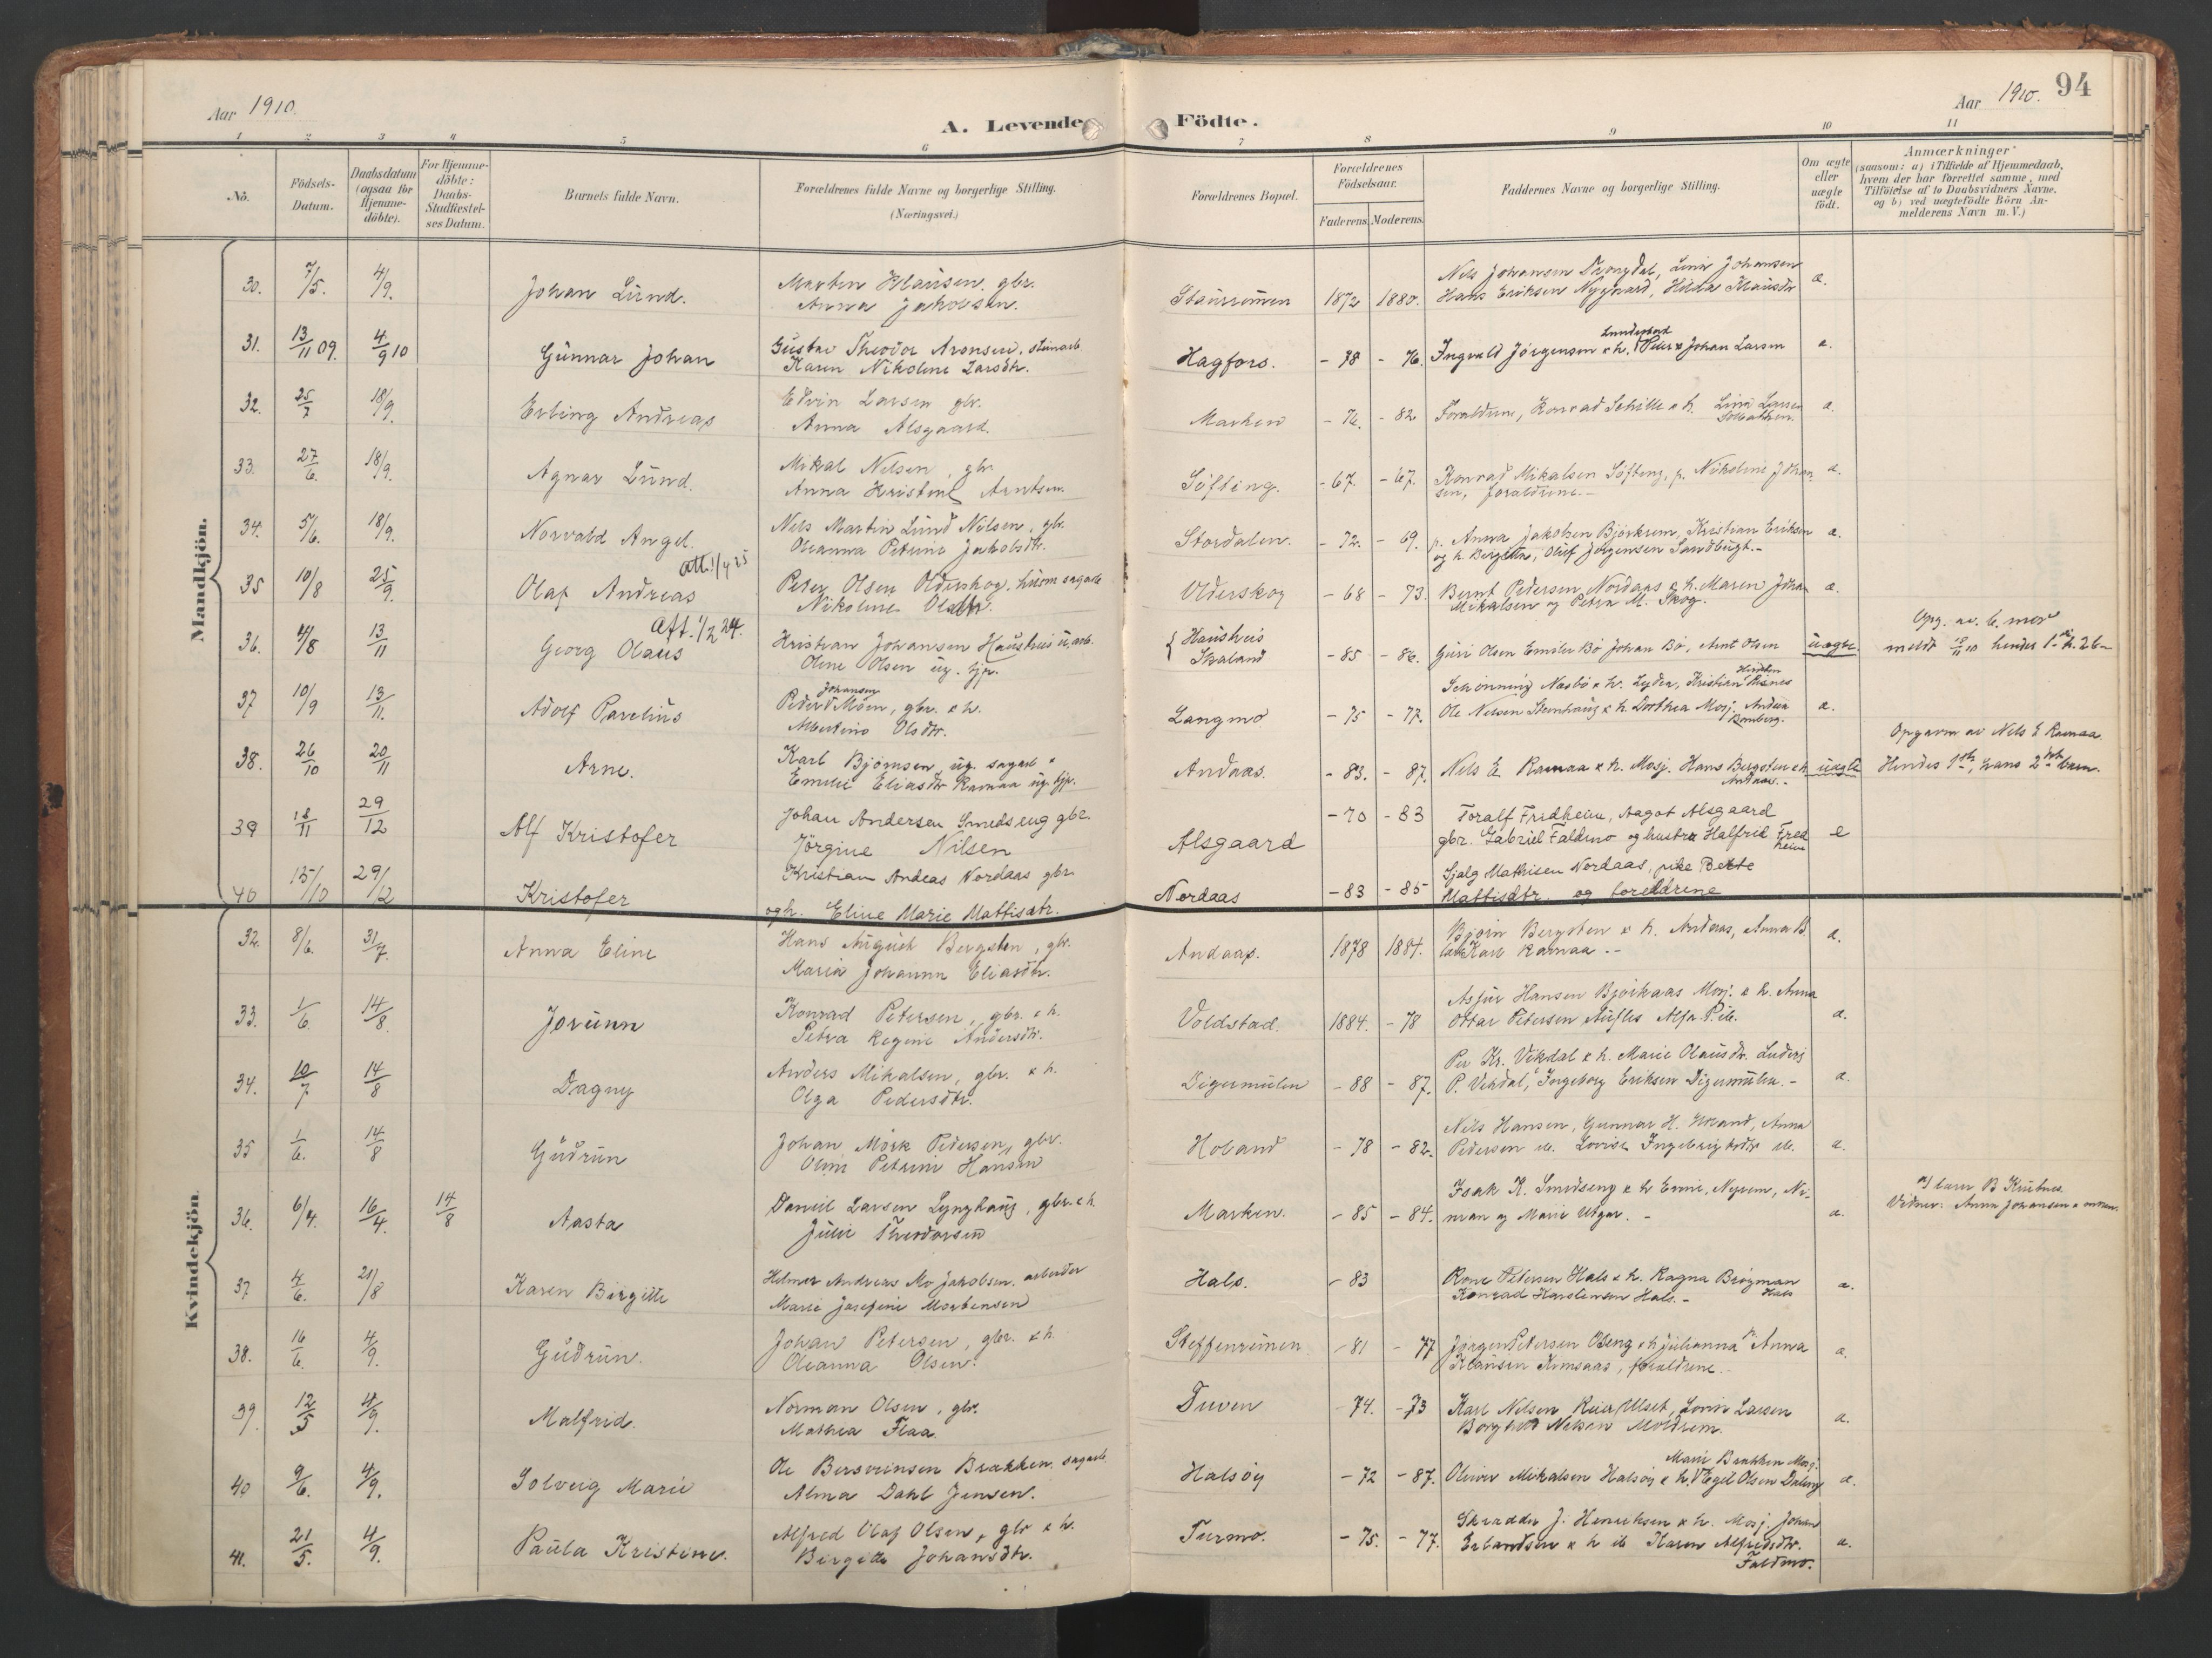 94
Aar 1910.
A. Levende Födte.
Aar 1910.
1 2 3 4 5 6 7 8 9 10 11
No.
Födsels-Datum.
Daabsdatum (ogsaa for Hjemme-döbte).
For Hjemme-döbte: Daabs-Stadfæstel-ses Datum.
Barnets fulde Navn.
Forældrenes fulde Navne og borgerlige Stilling.
(Næringsvei.)
Forældrenes Bopæl.
Forældrenes Födselsaar.
Faderens. Moderens.
Faddernes Navne og borgerlige Stilling.
Om ægte eller uægte födt.
Anmærkninger
(saasom: a) i Tilfælde af Hjemmedaab, hvem der har forrettet samme, med Tilföielse af to Daabsvidners Navne, og b) ved uægtefödte Börn An-melderens Navn m. V.)
Mandkjön.
30. 7/5. 4/9. Johan Lund. Marten Klausen, gbr. Anna Jakobsen. 1872 1880. Nils Johansen Lina Johansen
Hans Eriksen Nygaard, Klausdtr a.
31. 13/11 09. 4/9 10 Gunnar Johan Gustav Theodor Aronsen, stenarb. Karen Nikoline Larsdtr. Hagfors. -78 -76. Ingvald Jörgensen & h. Peder & Johan Larsen a.
32. 25/7 18/9. Erling Andreas Edvin Larsen gbr. Anna Alsgaard. Marken -76. -82 Foraldrene, Konrad Schille & h. Lina Larsen a.
33. 27/6. 18/9. Agnar Lund. Mikal Nilsen, gbr. Anna Kristine Arntsen. Söfting. -67. -67. Konrad Mikalsen Söfting, p. Nikoline Johan-
sen, foraldrene.- a.
34. 5/6. 18/9. Norvald Angel. Nils Martin Lund Nilsen, gbr. Oleanna Petrine Jakobsdtr. Stordalen. -72. -69. p. Anna Jakobsen Björkrem, Kristian Eriksen
og h. Oluf Jörgensen Sandbugt.- a.
Att. 1/4 25
35 10/8 25/9. Olaf Andreas Peter Olsen Olderskog, husm sagarb Nikoline Olsdtr. Olderskog -68 -73. Bernt Pedersen Nordaas & h. Maren Johan
Mikalsen og Petra M. Skog. a.
Aft. 1/2 24.
36. 4/8 13/11 Georg Olaus Kristian Johansen Haushus u. arb. Oline Olsen ug. tjp. Haushus Skaland -85 -86. Guri Olsen Emilie Bö Johan Bö, Arnt Olsen uægte.
Opg. av b. mor
37 10/9 13/11. Adolf Parelius Peder Johansen Moen, gbr. & h. Albertine Olsdtr. Langmo -75 -77. Schönning Næsbö & h. Lyder, Kristian
Ole Nilsen Steinhaug & h. Dorthea Mosj. Andrea a.
38. 26/10 20/11 Arne. Karl Björnsen, ug. sagarb & Emilie Eliasdtr Ramaa ug. tjp. Andaas. -83. -87. Nils E. Ramaa & h. Mosj. Hans Bergsten & h Andaas.- uægte
Opgavn av Nils E Ramaa.
Hendes 1ste, hans 2det barn.
39 18/11 29/12 Alf Kristofer Johan Andersen Smedseng gbr. Jörgine Nilsen Alsgaard -70 -83 Toralf Fredheim, Aagot Alsgaard
gbr. Gabriel Faldmo og hustru Halfrid Fredheim e
40 15/10 29/12 Kristofer Kristian Andeas Nordaas gbr. og h. Eline Marie Mattisdtr. Nordaas -83 -85 Sjalg Mathisen Nordaas, pike Berte
Mattisdtr. og foreldrene
Kvindekjön.
32. 8/6. 31/7. Anna Eline Hans August Bergsten, gbr. Maria Johanna Eliasdtr. Andaas. 1878 1884. Björn Bergsten & h. Andaas, Anna B.
Karl Ramaa.- a.
33. 1/6. 14/8. Jorunn Konrad Petersen, gbr. & h. Petra Regine Andersdtr. Voldstad. 1884. -78 Hansen Björkaas Mosj. & h. Anna
Ottar Petersen a.
34. 10/7 14/8 Dagny Anders Mikalsen, gbr. & h. Olga Pedersdtr. Digermulen -88 -87. Per Kr. Vikdal & h. Marie Olausdtr.
P. Vikdal, Ingeborg Eriksen Digermulen.- a.
35 1/6. 14/8 Gudrun Johan Mörk Pedersen, gbr. Oline Petrine Hansen Holand -78 -82. Nils Hansen, Gunnar H. Holand, Anna
Pedersen ib. Lovise Ingebrigtsdtr ib. a.
36. 6/4. 16/4. 14/8 Aasta Daniel Larsen Lynghaug, gbr. & h. Julie Theodorsen Marken. -85 -84. Isak K. Smedseng & h Nyrem,
og Marie a.
Vidner: Anna Johansen & moren.
37 4/6. 21/8 Karen Birgitte Hilmer Andreas Mo Jakobsen. arbeider Marie Josefine Mortensen Hals. -83 Rone Petersen Hals & h. Ragna Brögman
Konrad Karstensen Hals.- a.
38. 16/6. 4/9. Gudrun. Johan Petersen, gbr. & h. Oleanna Olsen. Steffenremen. -81 -77 Jörgen Petersen & h Julianna p. Anna
Klausen foraldrene. a.
39. 12/5 4/9. Malfrid. Norman Olsen, gbr. Mathea Flaa. Tuven -74. -73 Karl Nilsen Ulset, Larsen
Borghild Nilsen a.
40 9/6. 4/9. Solveig Marie Ole Bersveinsen Brakken. sagarb. Alma Dahl Jensen. Halsöy -72 -87. Marie Brakken Mosj.
Oliver Mikalsen Halsöy & h. Egil Olsen a.
41. 21/5. 4/9. Paula Kristine. Alfred Olaf Olsen, gbr & h. Birgitte Johansdtr. Turmo. -75. -77. Skradder J. Henriksen & h. Mosj Johan
Erlandsen & h ib Karen Alfredsdtr.
Faldmo. a.